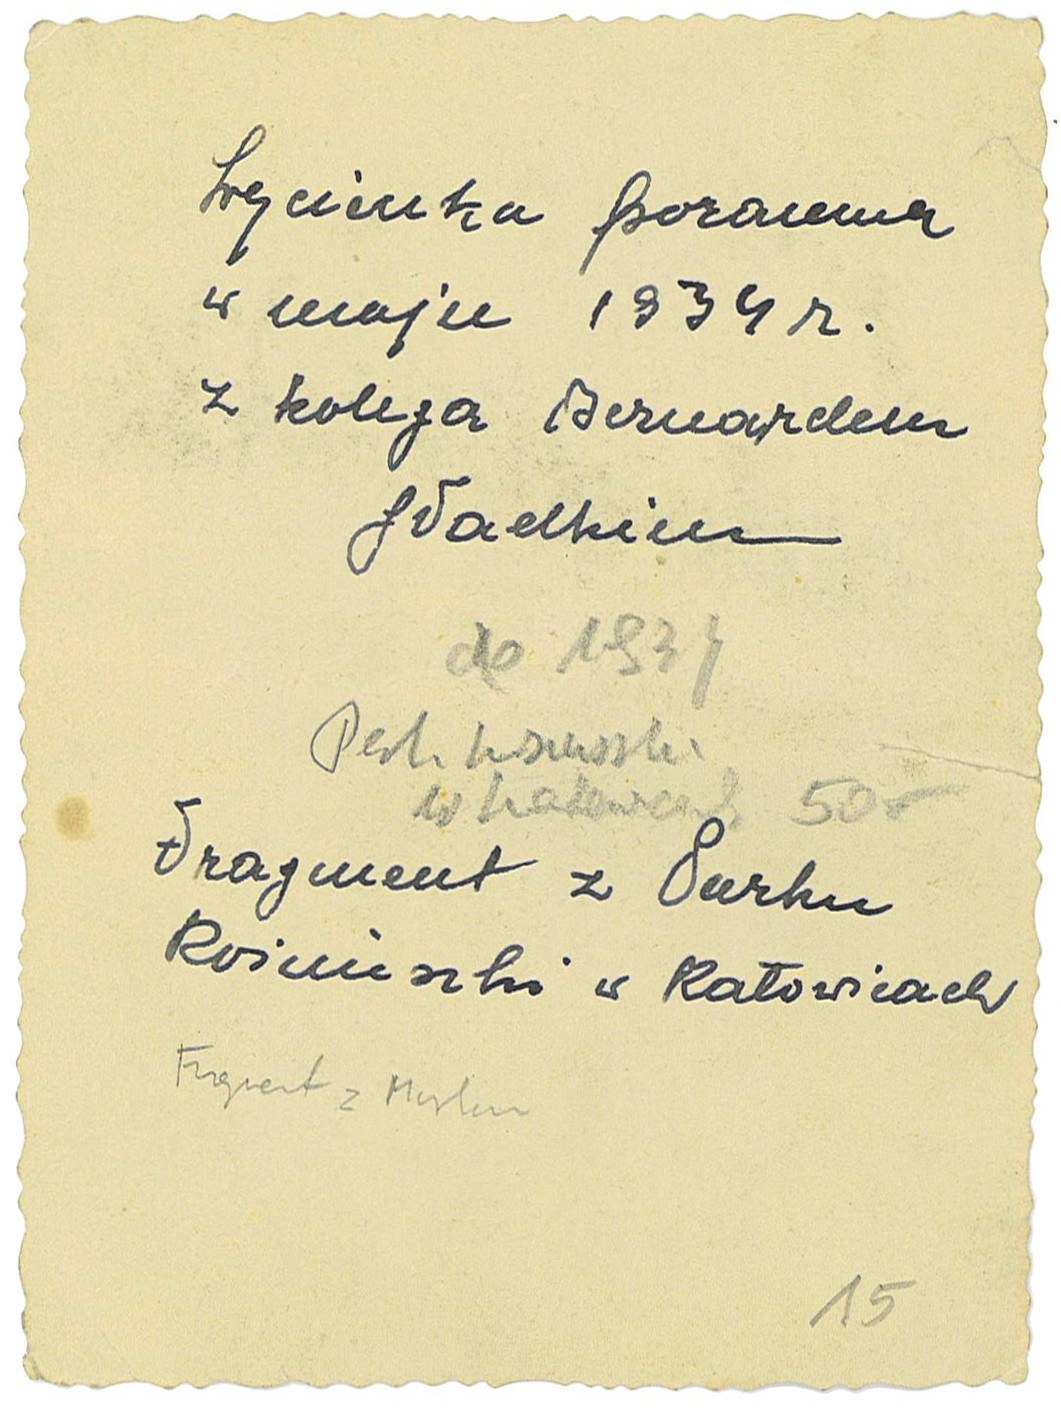 Wycieczka poranna
w maju 1934 r.
z kolegą Bernardem
Gładkim
do 1937
Park Kościuszki
w Katowicach 50
Fragment z Parku
Kościuszki w Katowicach
Fragment z
15